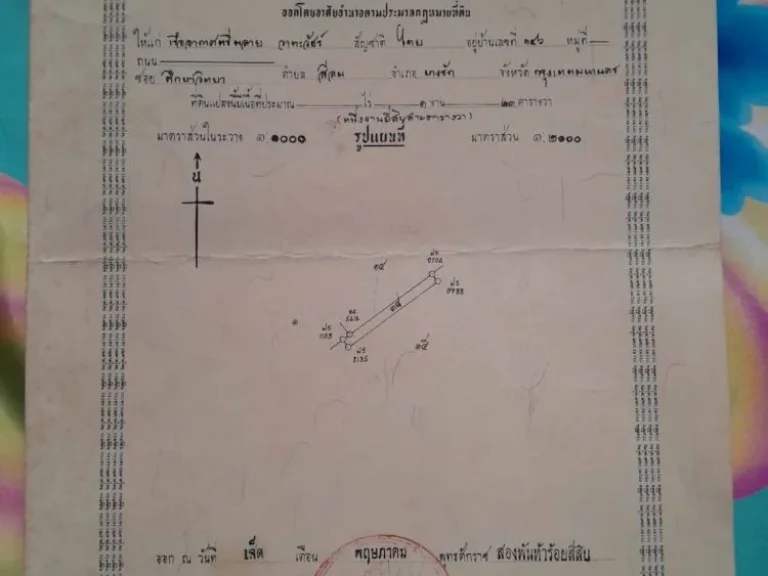 ออกโดยอาศัยอำนาจตามประมวลกฎหมายที่ดิน
ให้แก่ เรืออากาศตรี สัญชาติ ไทย อยู่บ้านเลขที่ ๑๔๖ หมู่ที่ —
ถนน
ซอย ศึกษาวิทยา ตำบล สีลม อำเภอ บางรัก จังหวัด กรุงเทพมหานคร
ที่ดินแปลงนี้มีเนื้อที่ประมาณ ไร่ ๑ งาน ๒๓ ตารางวา
(หนึ่งงานยี่สิบสามตารางวา)
มาตราส่วนในระวาง ๑:๑๐๐๐ รูปแผนที่ มาตราส่วน ๑:๒๑๐๐
น
๑๔
๑
๑๕
ออก ณ วันที่ เจ็ด เดือน พฤษภาคม พุทธศักราช สองพันห้าร้อยสี่สิบ